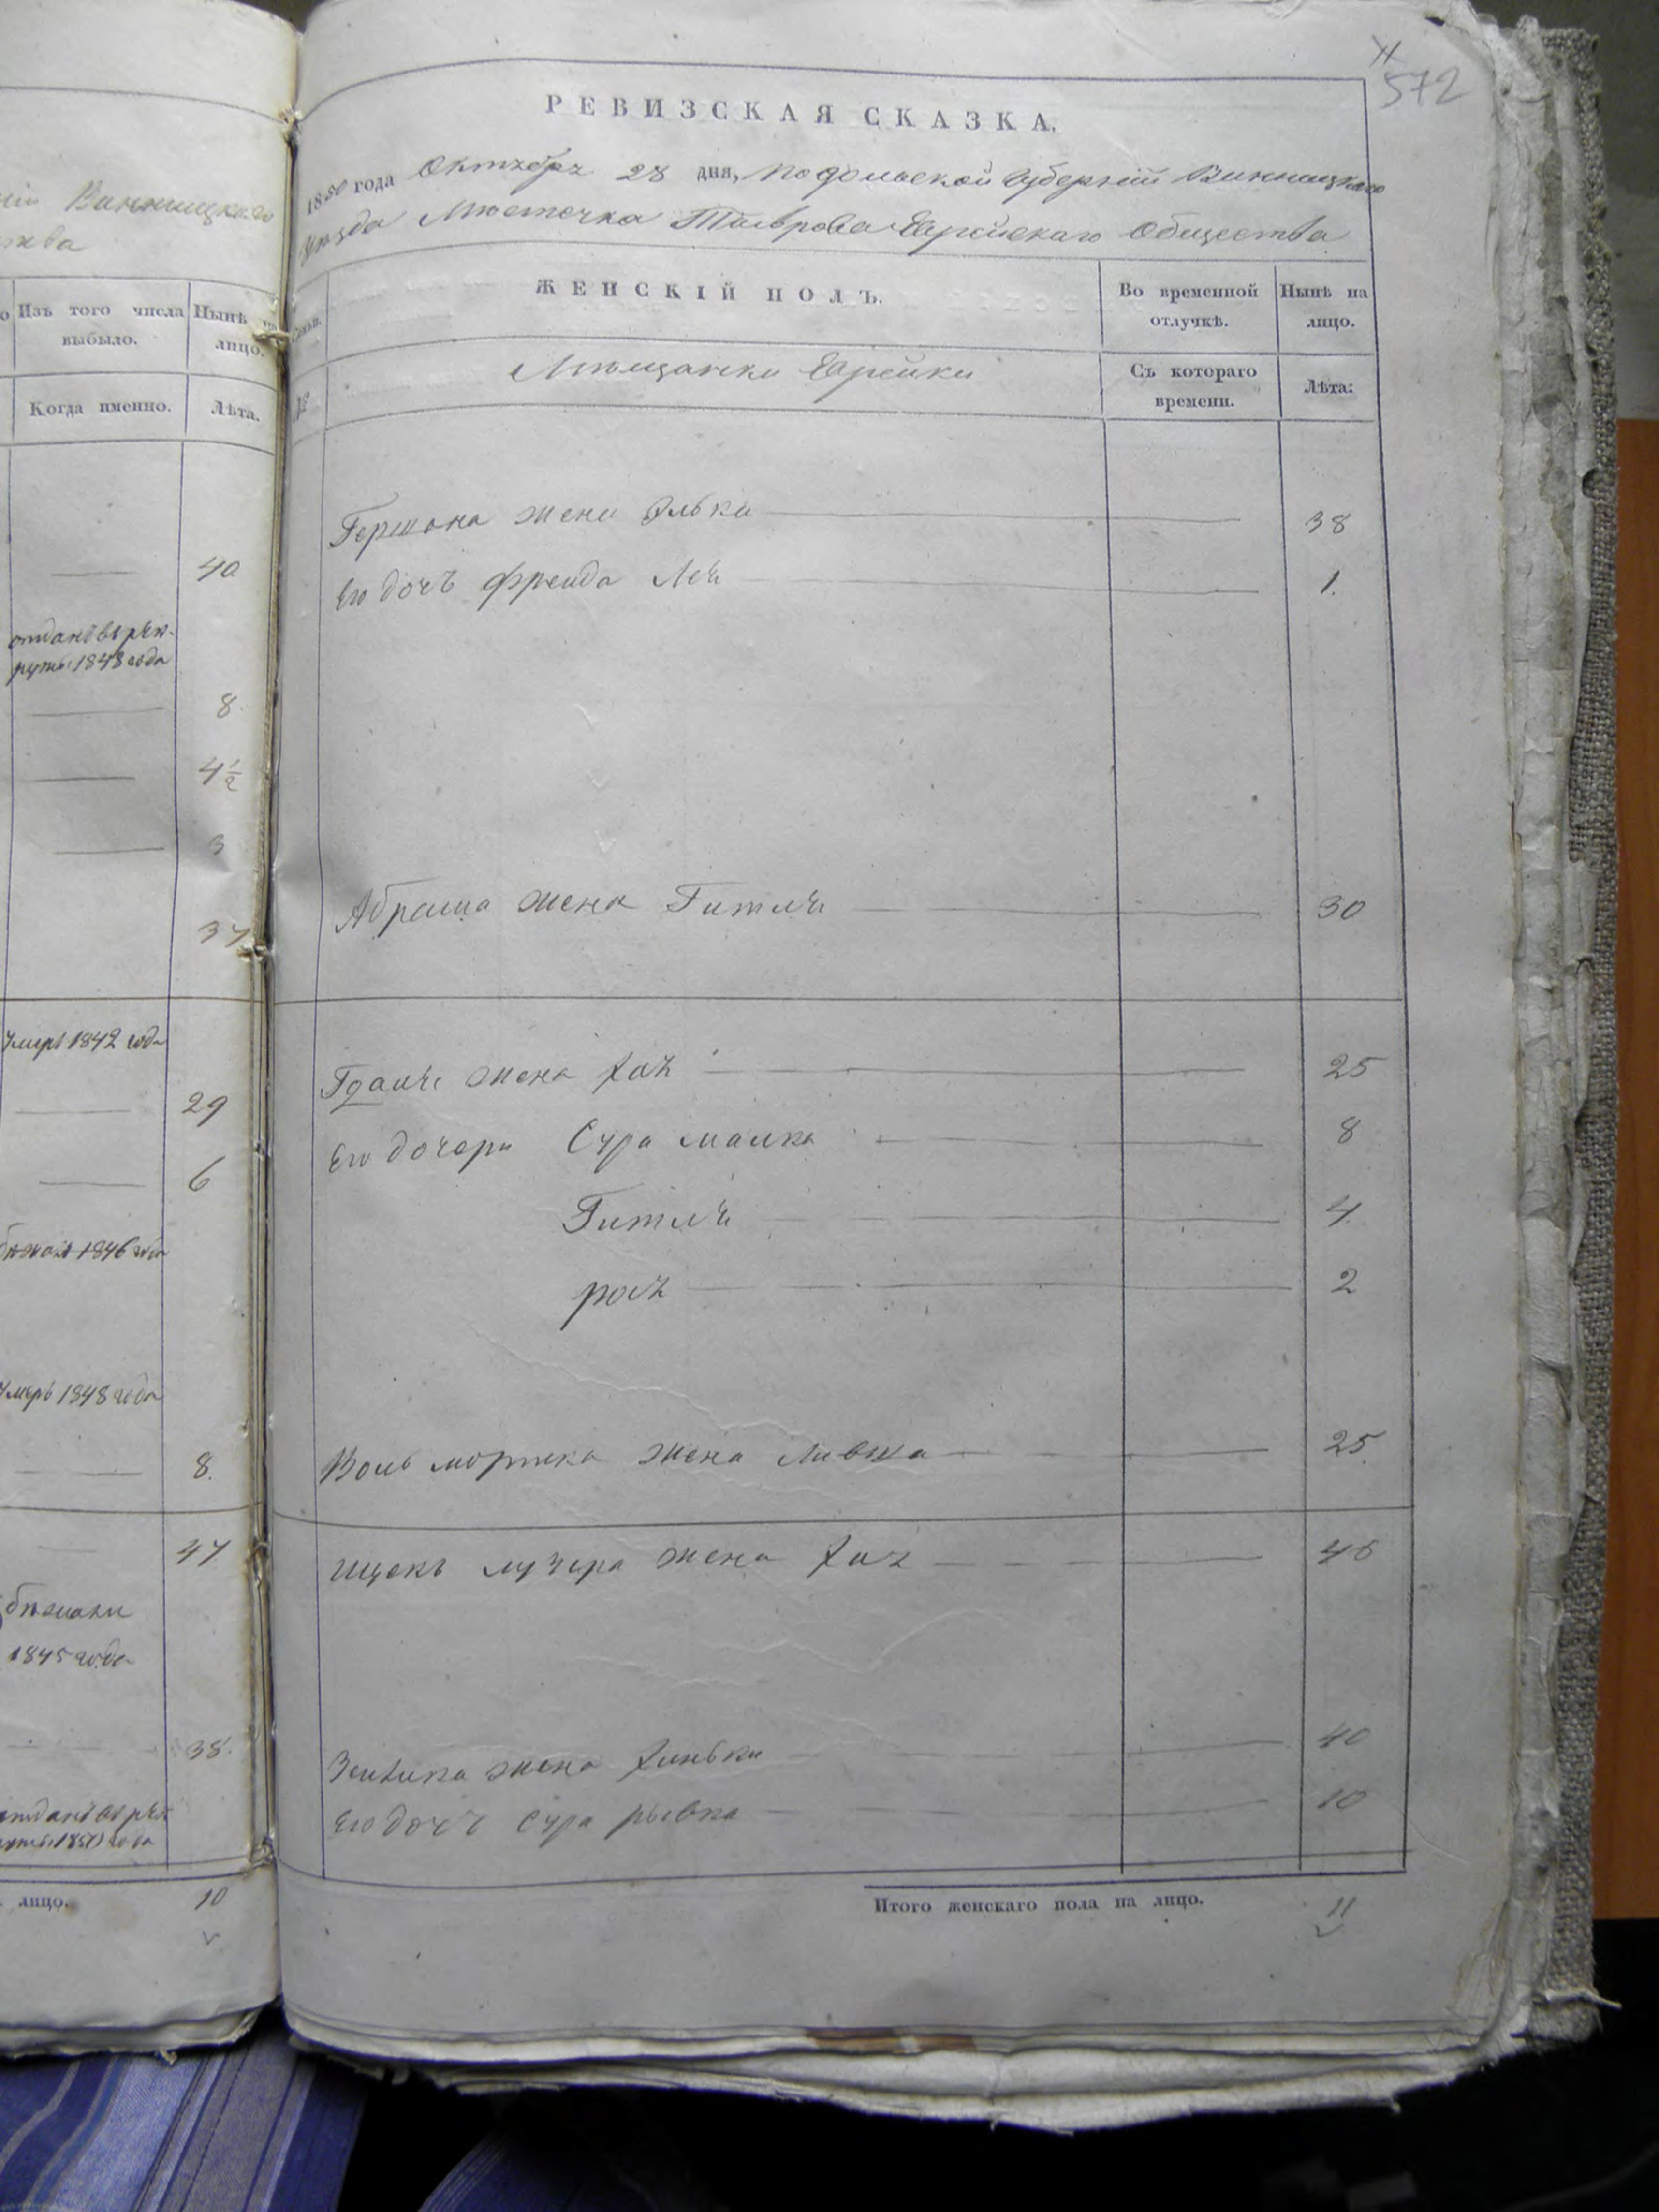 ніи Винницкаго
ства
Изъ того числа выбыло.
Нынѣ на лицо.
Когда именно.
Лѣта.
40
отданъ въ рек-
руты 1848 года
8
4 1/2
3
37
Умеръ 1842 года
29
6
1846 года
Умеръ 1848 года
8.
47
бѣжали
1845 года
38.
отданъ въ рек
руты 1850 года
лицо.
10
572
РЕВИЗСКАЯ СКАЗКА.
1850 года Октября 28 дня, Подольской Губерніи Винницкаго
уѣзда Мѣстечка Тыврова Еврейскаго Общества
ЖЕНСКІЙ ПОЛЪ.
Во временной отлучкѣ.
Нынѣ на лицо.
Семьи.
№
Мѣщанки Еврейки
Съ котораго времени.
Лѣта:
Гершона жена Элька 38
Его дочь Фрейда Лея 1.
Абрама жена Гитля 30
Гдаля жена Хая 25
Его дочери Сура Малка 8
Гитля 4.
рося 2
Воль Мортка жена Ливша 25.
Ицекъ жена Хая 46
Зейлика жена Хинька 40
Его дочь Сура рывка 10
Итого женскаго пола на лицо. 11